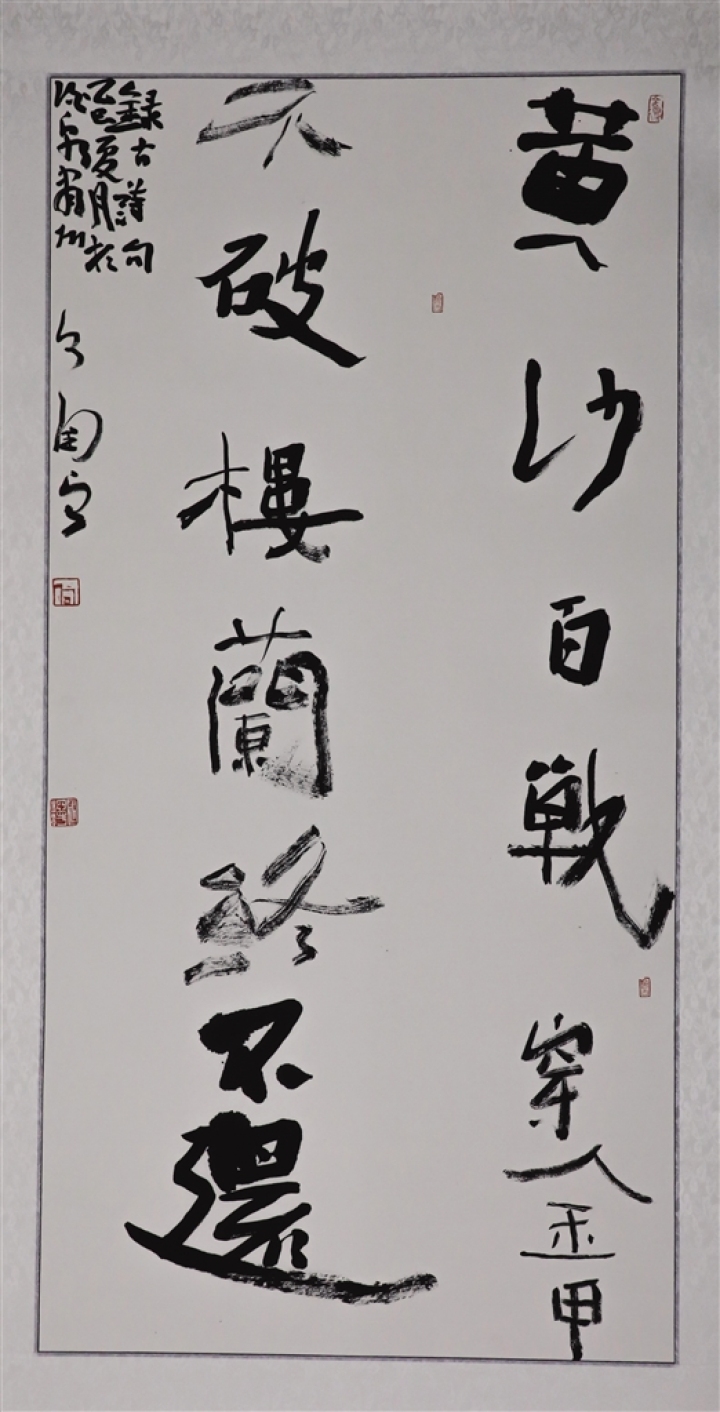 黄沙百戰穿金甲
不破樓蘭終不還
錄古詩句
乙巳夏月於